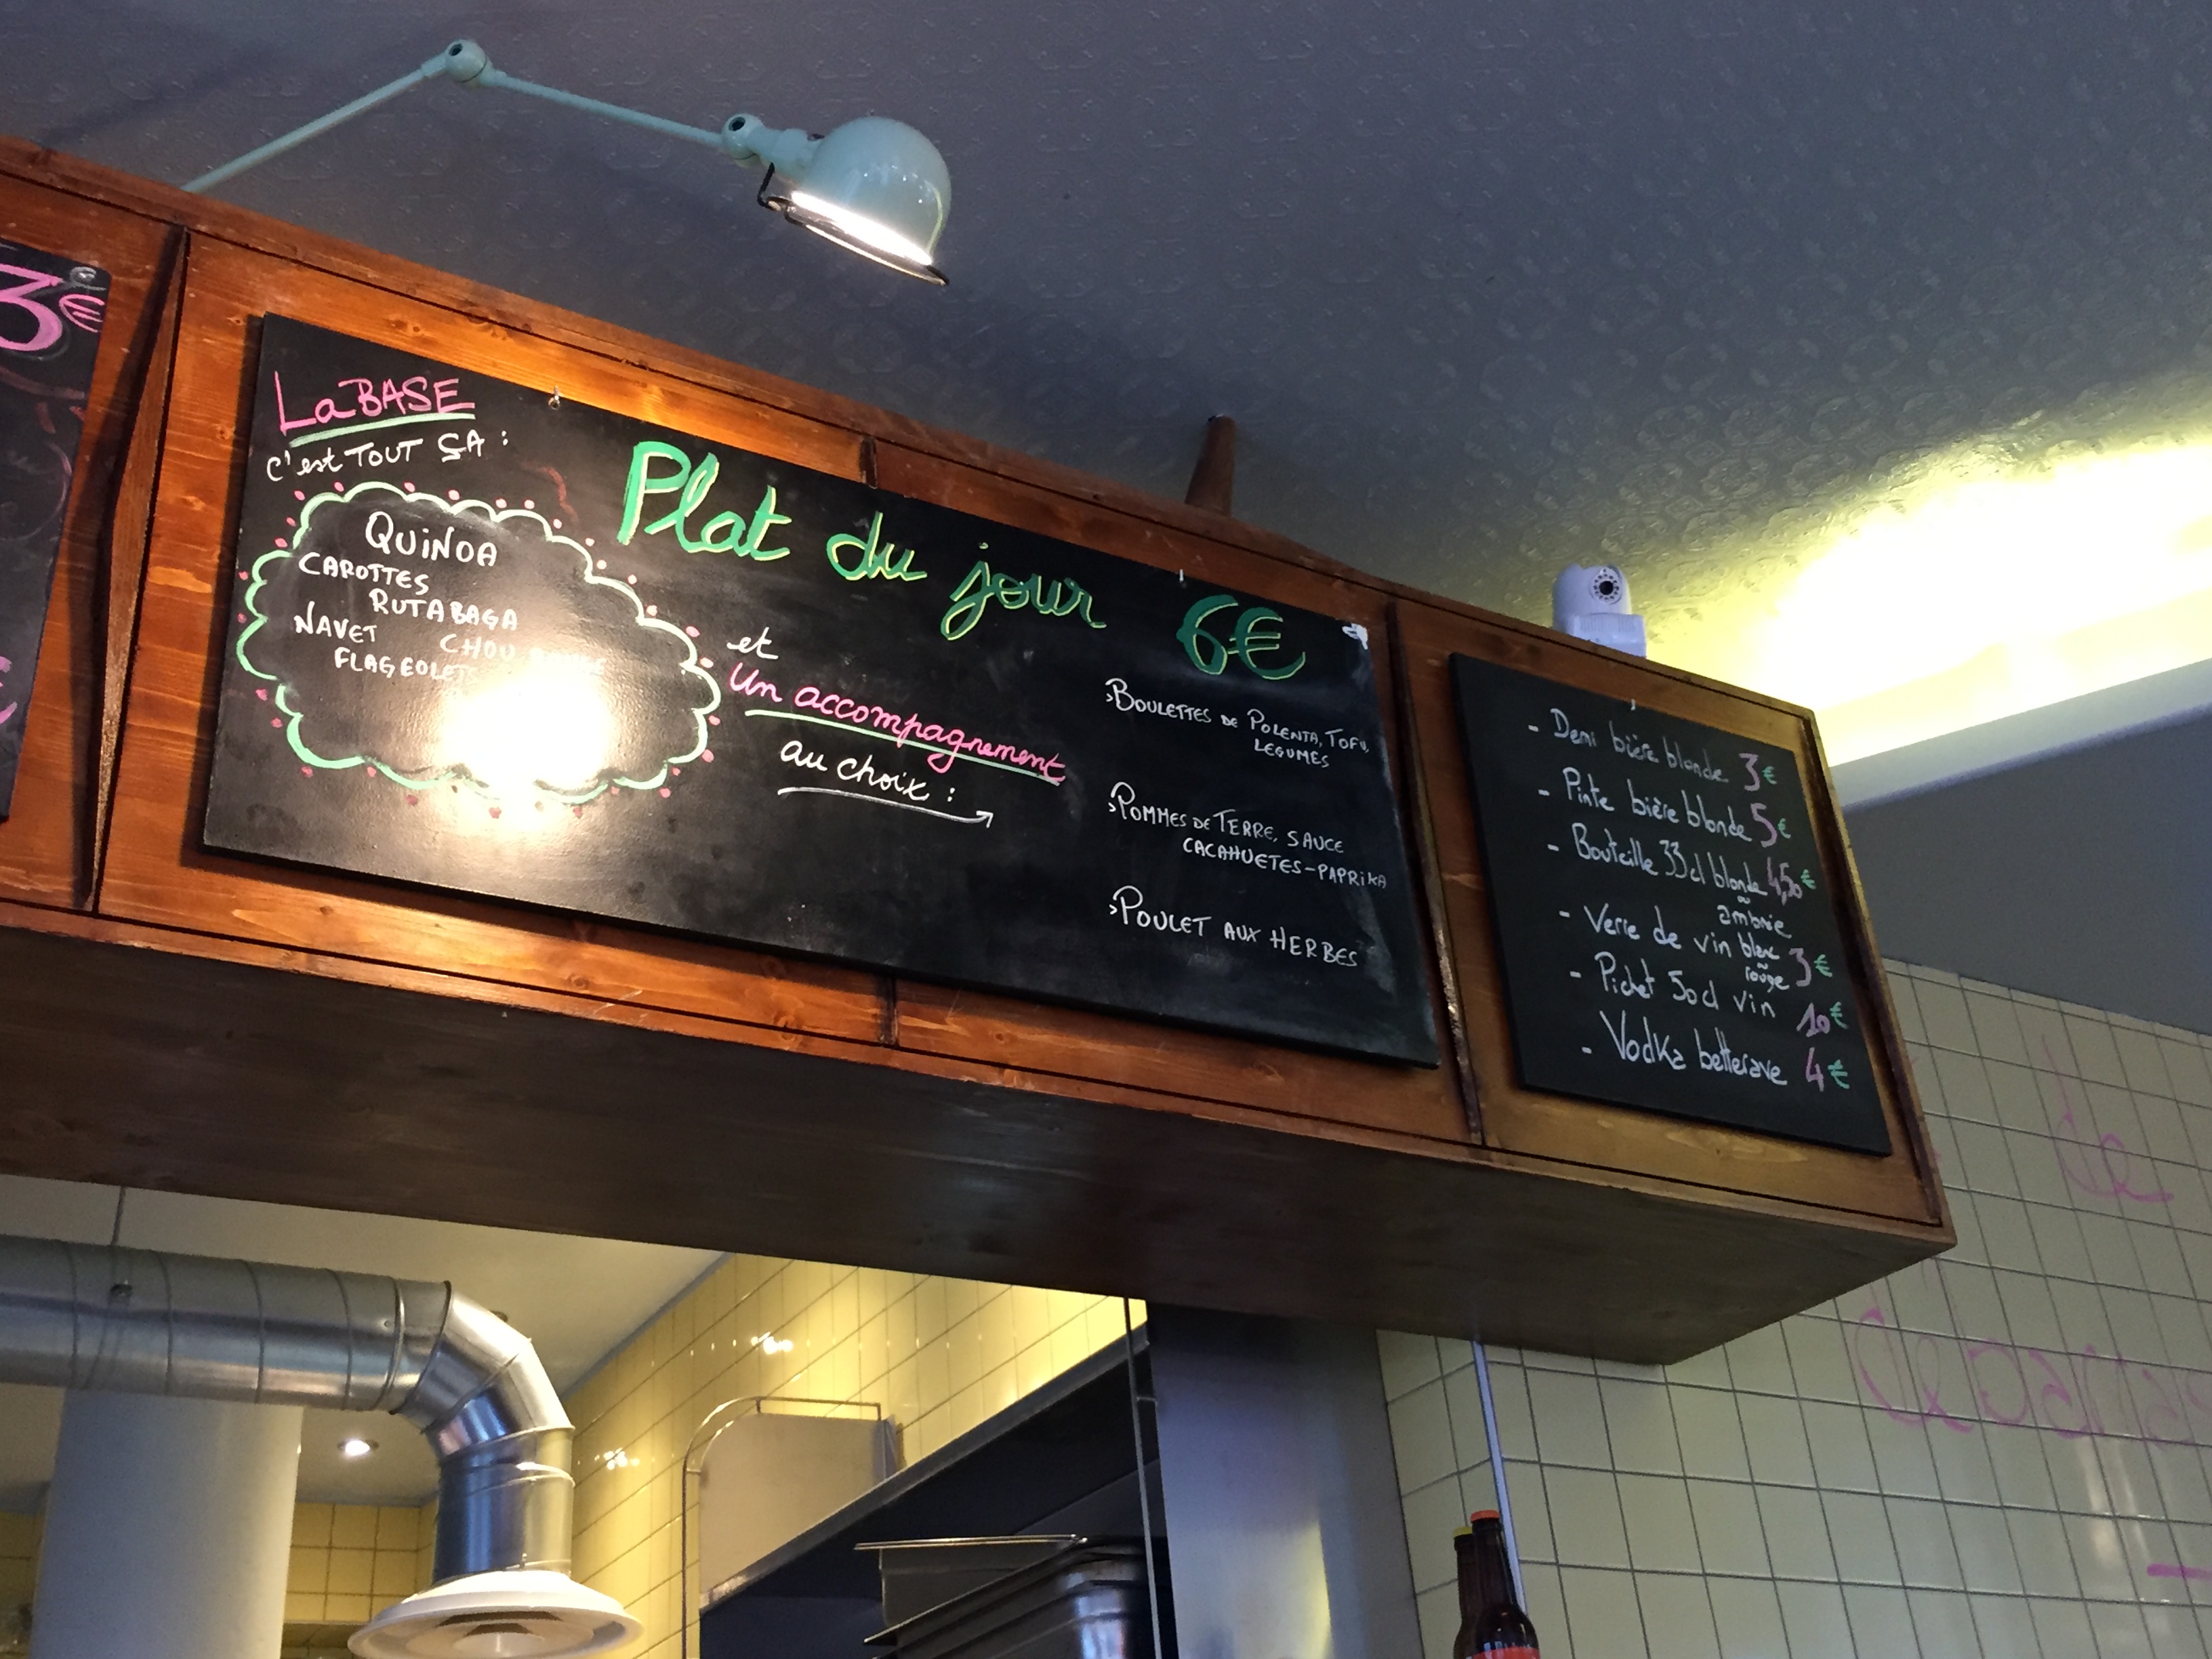 3€
La BASE
c'est TOUT ÇA :
QUINOA
CAROTTES
RUTABAGA
NAVET CHOU ROUGE
FLAGEOLETS
Plat du jour 6€
et
Un accompagnement
au choix :
>BOULETTES DE POLENTA, TOFU,
LEGUMES
>POMMES DE TERRE, SAUCE
CACAHUETES-PAPRIKA
>POULET AUX HERBES
- Demi bière blonde 3€
- Pinte bière blonde 5€
- Bouteille 33cl blonde 4,50€
ambrée
- Verre de vin blanc 3€
rouge
- Pichet 50cl vin 10€
- Vodka betterave 4€
de